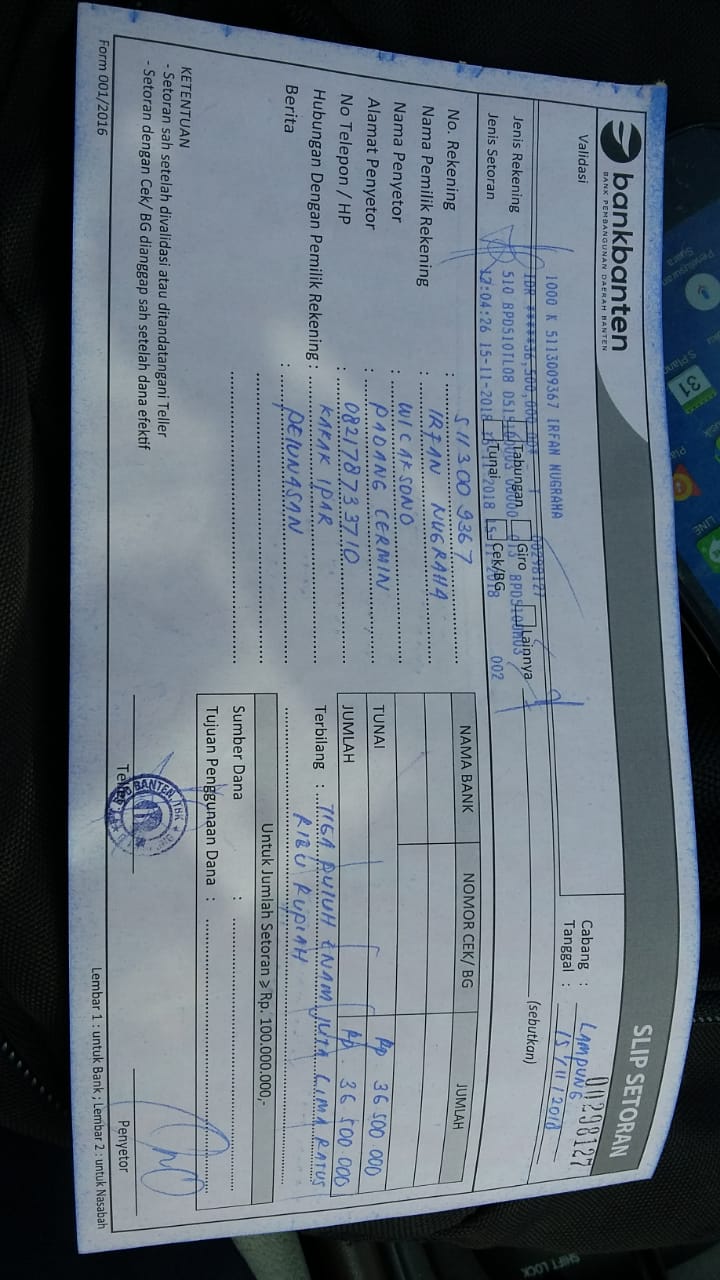 bankbanten
BANK PEMBANGUNAN DAERAH BANTEN
SLIP SETORAN
00298127
Validasi
1000 K 5113009367 IRFAN NUGRAHA
00298127
IDR ******36,500,000.00
510 BPD510TL08 051
17:04:26 15-11-2018 15-11-2018 15-11-2018 002
Cabang : LAMPUNG
Tanggal : 15/11/2018
Jenis Rekening Tabungan Giro Lainnya (sebutkan)
Jenis Setoran Tunai Cek/BG
No. Rekening : 511300 9367
Nama Pemilik Rekening : IRFAN NUGRAHA
Nama Penyetor : WICAKSONO
Alamat Penyetor : PADANG CERMIN
No Telepon / HP : 082178733710
Hubungan Dengan Pemilik Rekening : KAKAK IPAR
Berita : PELUNASAN
NAMA BANK NOMOR CEK/ BG JUMLAH
TUNAI Rp 36 500 000
JUMLAH Rp 36 500.000
Terbilang : TIGA PULUH ENAM JUTA LIMA RATUS
RIBU RUPIAH
Untuk Jumlah Setoran ≥ Rp. 100.000.000,-
Sumber Dana :
Tujuan Penggunaan Dana :
KETENTUAN
- Setoran sah setelah divalidasi atau ditandatangani Teller
- Setoran dengan Cek/ BG dianggap sah setelah dana efektif
Teller
BANTEN TBK
Penyetor
Form 001/2016
Lembar 1 : untuk Bank ; Lembar 2 : untuk Nasabah
S Plann
31
LINE
SHIFT LOCK